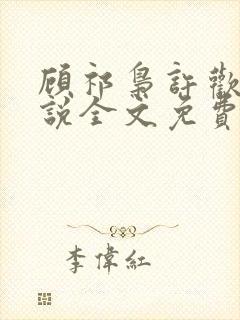 顧祁梟許歡
說全文免費
李偉紅